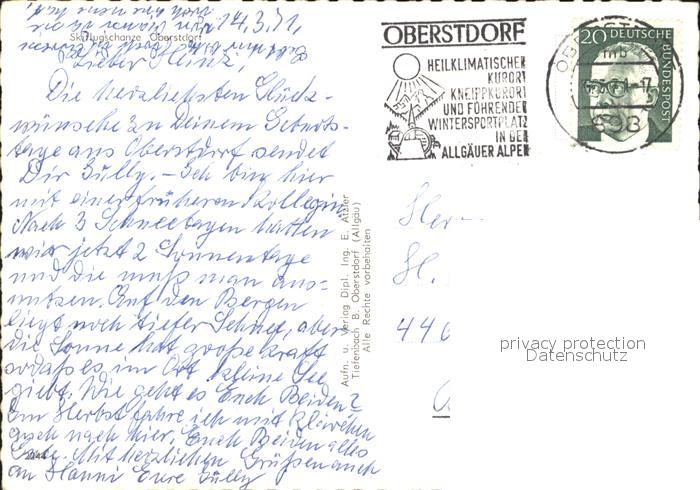 14.3.71,
Skiflugschanze Oberstdorf
Lieber Heinz!
Die herzlichsten Glück-
wünsche zu Deinem Geburts-
tage aus Oberstdorf sendet
Dir Züllÿ. – Ich bin hier
mit einer früheren Kollegin
Nach 3 Schneetagen hatten
wir jetzt 2 Sonnentage
und die muß man aus-
nutzen. Auf den Bergen
liegt noch tiefer Schnee, aber
die Sonne hat große Kraft
sodaß es im Ort kleine See
giebt. Wie geht es Euch Beiden?
Im Herbst fahre ich mit Klärchen
auch nach hier. Euch Beiden alles
Gute. Mit herzlichen Grüßen auch
an Hanni Eure
Aufn. u. Verlag Dipl. Ing. E. Atzler
Tiefenbach B. Oberstdorf (Allgäu)
Alle Rechte vorbehalten
OBERSTDORF
HEILKLIMATISCHER
KURORT
KNEIPPKURORT
UND FÜHRENDER
WINTERSPORTPLATZ
IN DEN
ALLGÄUER ALPEN
20 DEUTSCHE
BUNDESPOST
898
Herr
H.
440
privacy protection
Datenschutz